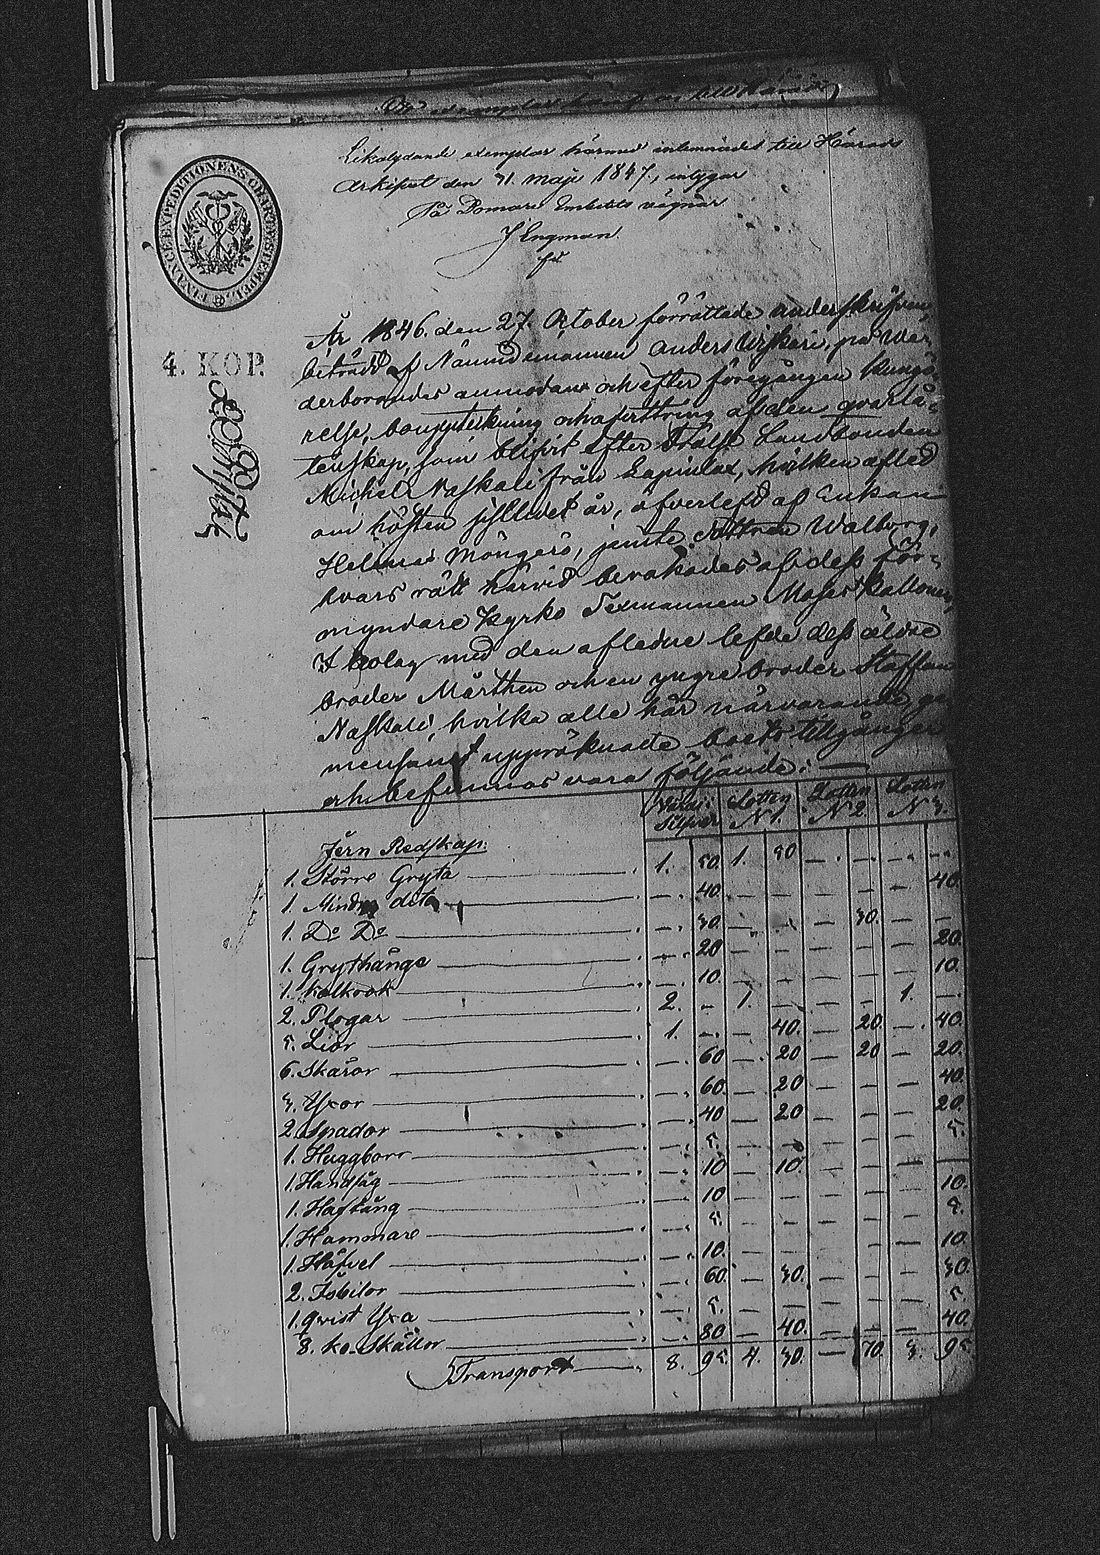 Likalydande exemplar härmed inlemnadt till Härads
arkifvet den 31. Maji 1847, intygar
På Domare Embetets vägnar
J Engman
FINANCE EXPEDITIONENS CHARTÆ STEMPEL
4. KOP.
År 1846. den 27. Oktober förrättade underskrifven,
biträdd af Nämndemannen Anders Virkari, på wär
derborandes anmodan och efter föregången kungö
relse, bouppteckning och afvittring af den qvarlå
tenskap, som blifvit efter Frälse Landbonden
Michel Naskali från Lapinlax, hvilken afled
om hösten sistlidet år, öfverlefd af Enkan
Helena Möngerö, jemte dottren Walborg,
hvars rätt härvid bevakades af dess för-
myndare Kyrko Sexmannen Moses
I bolag med den aflidne lefde dess äldre
broder Mårthen och en yngre broder Staffan
Naskali, hvilka alle här närvarande ge
mensamt uppräknade boets tillgångar
och befinnas vara följande:
Silfver Lotten N 1. Lotten N 2. Lotten N 3.
Jern Redskap:
1. Större Gryta 1. 50. 1. 50
1. Mindre dito — 40. 40.
1. Do Do — 30. — 30. —
1. Grythänge — 20 20.
1. kolkrok — 10. 10.
2. Plogar 2. — 1. — 1. —
5. Liar 1. — — 40. — 20. — 40.
6. Skäror — 60 — 20 — 20 — 20.
3. Yxor — 60. — 20 — 40.
2. Spador — 40 — 20 — 20.
1. Huggborr — 5. — 5.
1. Handsåg — 10 — 10. —
1. Hoftång — 10 — 10.
1. Hammare — 5. — 5.
1. Häfvel — 10. — 10.
2. Isbilor — 60. — 30. — 30.
1. qvist Yxa — 5. — 5.
8. ko Skällor — 80 — 40. — 40.
Transport 8. 95. 4. 30. — 70. 3. 95.